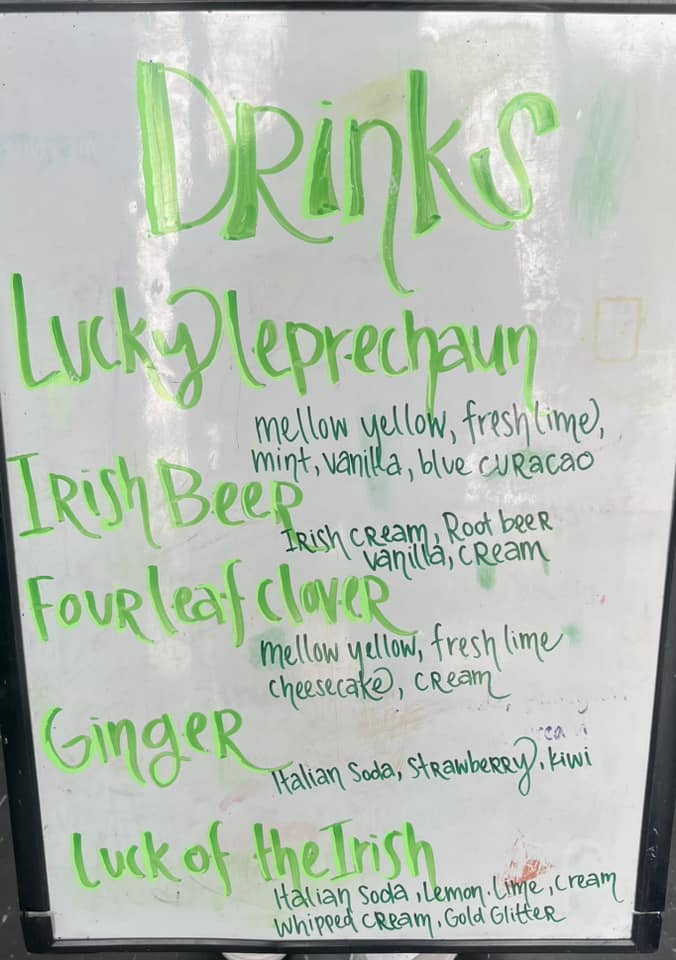 Drinks
Lucky leprechaun
mellow yellow, fresh lime,
mint, vanilla, blue curacao
Irish Beer
Irish cream, Root beer
vanilla, cream
Four leaf clover
mellow yellow, fresh lime
cheesecake, cream
Ginger
Italian Soda, strawberry, kiwi
Luck of the Irish
Italian Soda, Lemon. Lime, cream
whipped cream, Gold Glitter